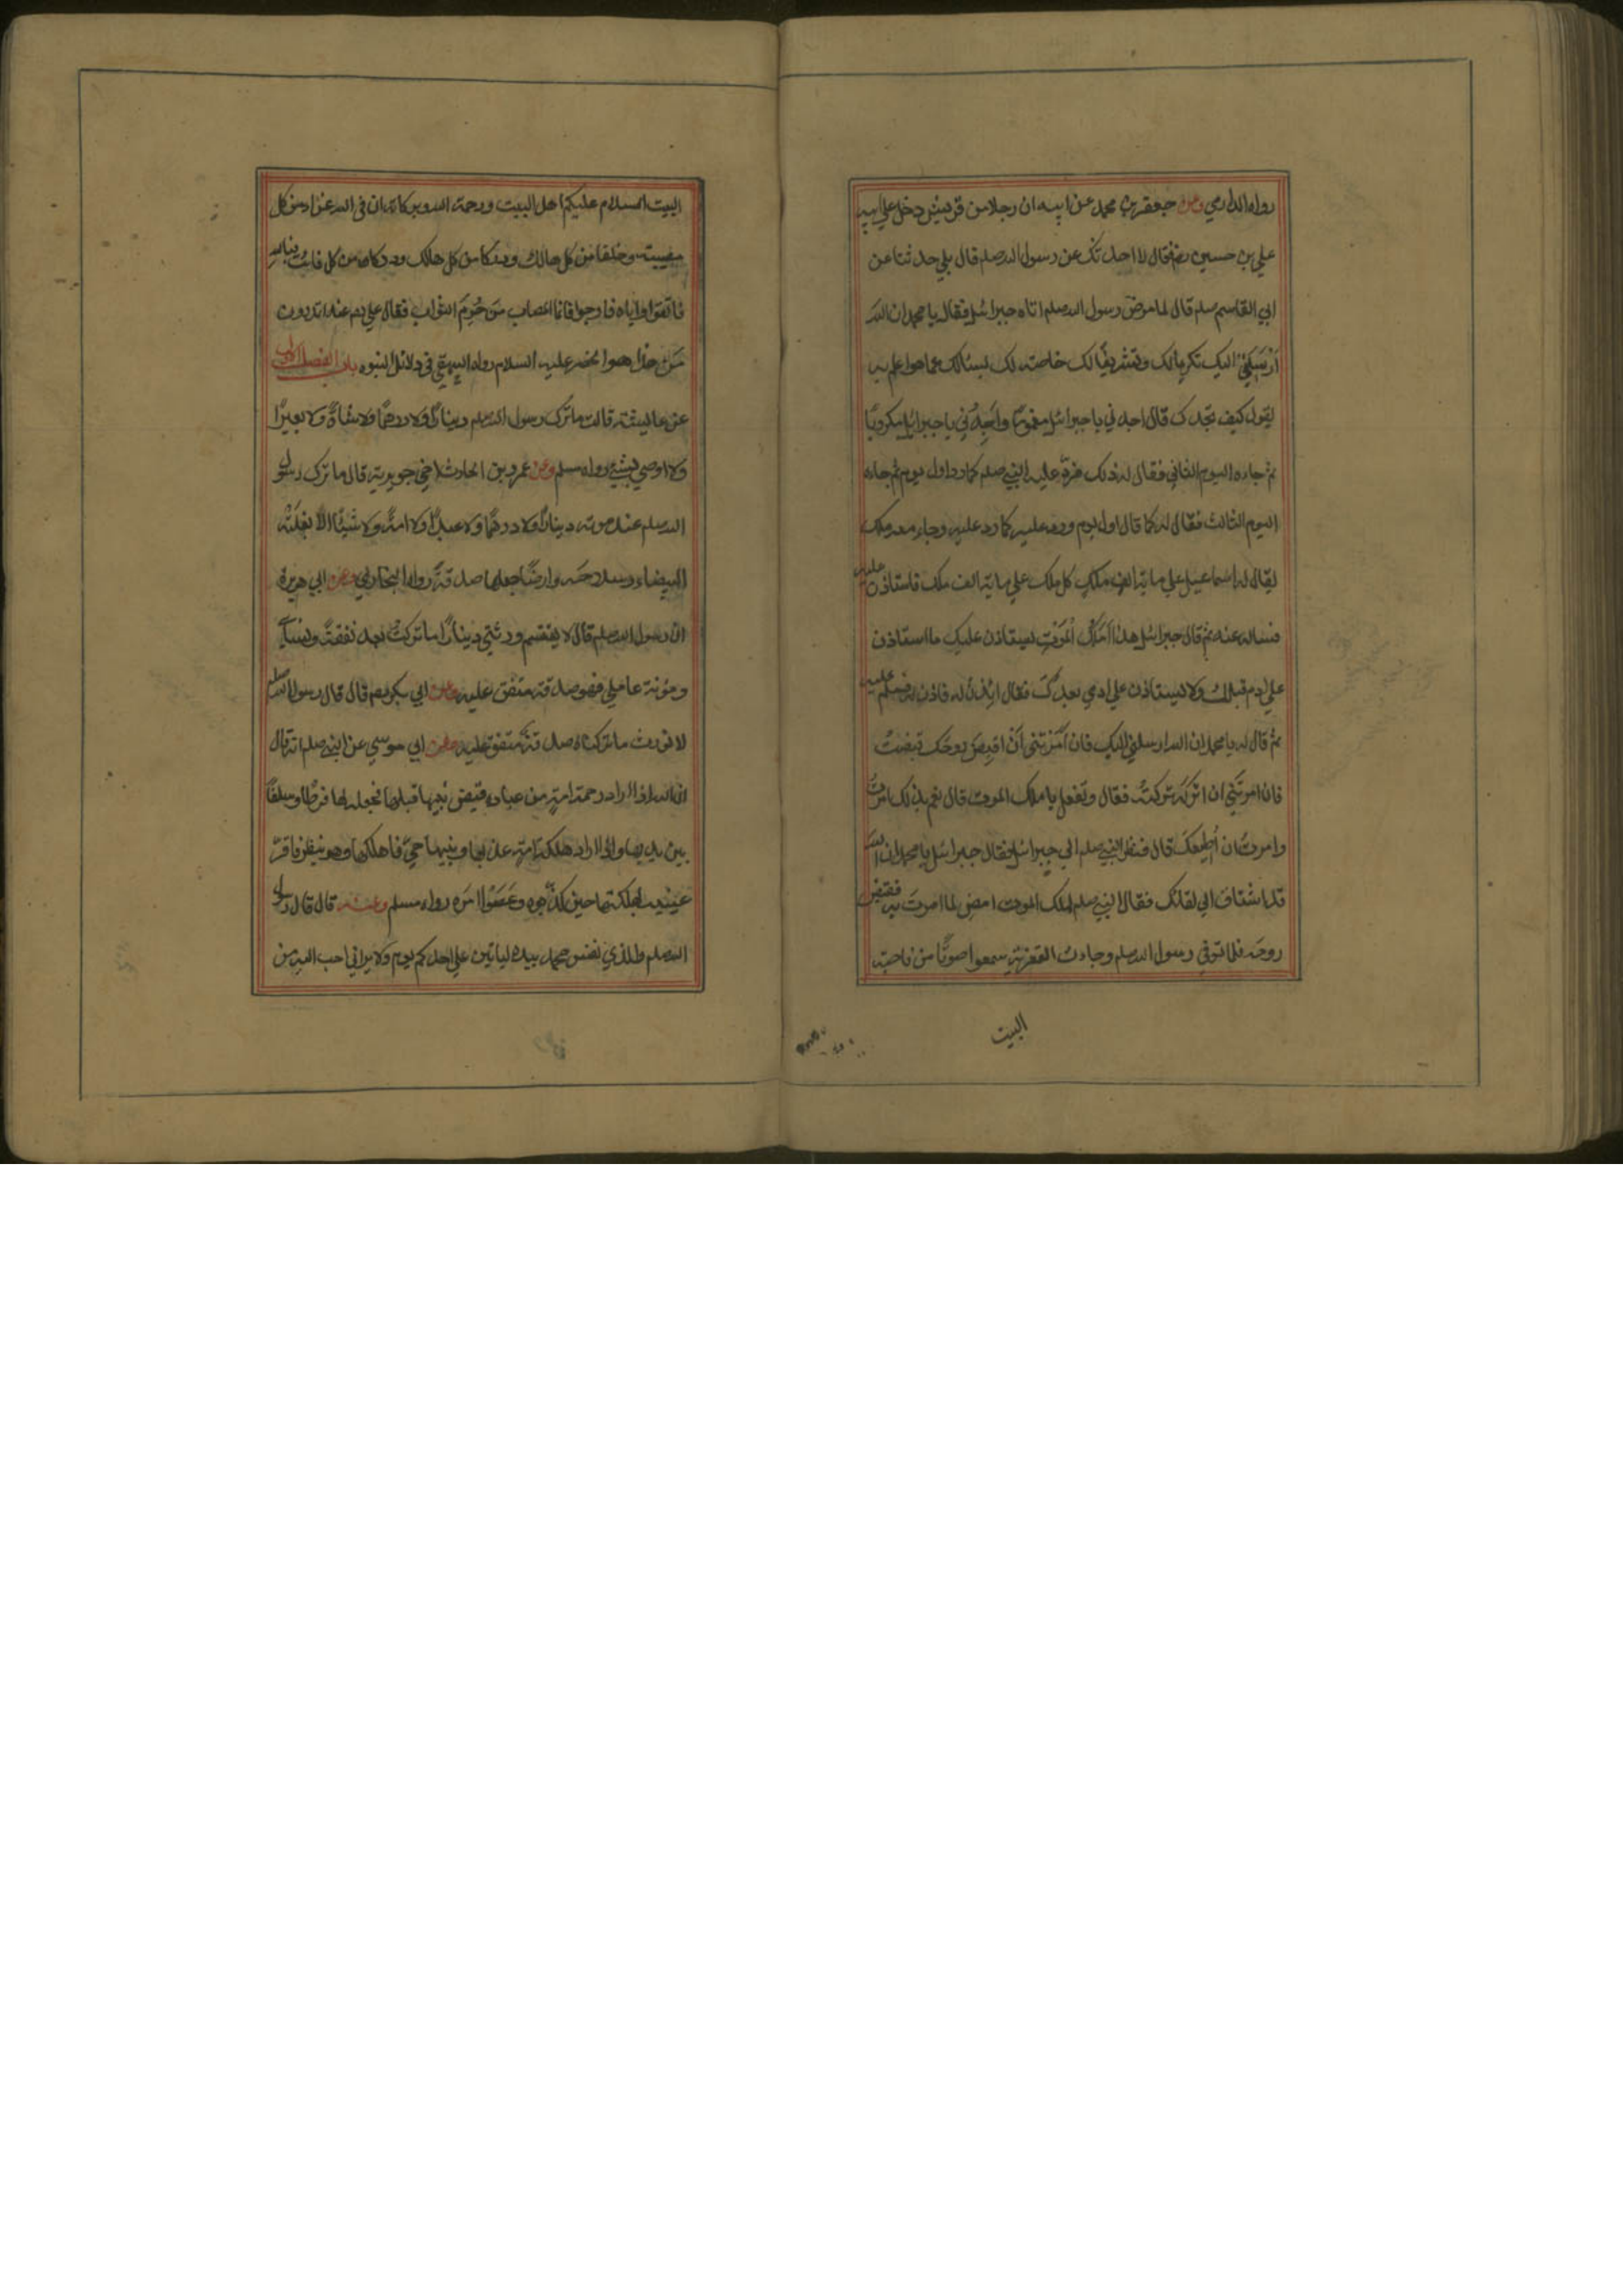 رواه الدارمي وعن جعفر بن محمد عن ابيه ان رجلا من قريش دخل علي ابيه
علي بن حسين رض فقال الا احدثك عن رسول الله صلم قال بلي حدثنا عن
ابي القاسم صلم قال لما مرض رسول الله صلم اتاه جبرائيل فقال يا محمد ان الله
اَرْسَلَنِيْ اليك تكريما لك وتشريفًا لك خاصته لك ليسئالك عما هوا علم به
يقول كيف تجدك قال اجدني يا جبرائيل مغمومًا واَجِدُنِي يا جبرائيل مكروبًا
ثم جاءه اليوم الثاني فقال له ذلك فردّ عليه النبي صلم كما رد اول يوم ثم جاءه
اليوم الثالث فقال له كما قال اول يوم ورد عليه كما رد عليه وجاء معه ملك
يقال له اسماعيل علي ماية الف ملك كل ملك علي ماية الف ملك فاستاذن عليه
فساله عنه ثم قال جبرائيل هذا مَلَكُ الْمَوْتِ يستاذن عليك ما استاذن
علي ادم قبلك ولا يستاذن علي ادمي بعدك فقال ائذن له فاذن له فسلم عليه
ثم قال له يا محمد ان الله ارسلني اليك فان اَمَرْتَنِي اَنْ اَقبِضَ روحَك قبضتُ
فان امرتَنِي ان اتركه تركتُه فقال وتفعل يا ملك الموت قال نعم بذلك امرتُ
وامرتُ ان اُطِيعَكَ قال فنظر النبي صلم الي جبرائيل فقال جبرائيل يا محمد ان الله
قد اشتاق الي لقائك فقال النبي صلم لملك الموت امض لما امرتَ به فقبض
روحه فلما توفي رسول الله صلم وجاءت التعزية سمعوا صوتًا من ناحية
البيت
البيت السلام عليكم اهل البيت ورحمة الله وبركاته ان في الله عزاء من كل
مصيبته وخلفا من كل هالك ودركا من كل فائت فبالله
فاتقوا واياه فارجوا فانما المصاب مَن حُرِمَ الثواب فقال علي رض اتدرون
مَن هذا هوا لخضر عليه السلام رواه البيهقي في دلائل النبوه باب الفصل الاول
عن عايشة قالت ما ترك رسول الله صلم دينارًا ولا درهمًا ولا شاةً ولا بعيرًا
ولا اوصي بشيئ رواه مسلم وعن عمرو بن الحارث اخي جويرية قال ما ترك رسول
الله صلم عند موته دينارًا ولا درهمًا ولا عبدًا ولا امةً ولا شيئًا الا بغلَتَه
البيضاء وسلاحه وارضًا جعلها صدقةً رواه البخاري وعن ابي هريرة
ان رسول الله صلم قال لا يقتسم ورثتي دينارًا ما تركتُ بعد نفقة نسائي
ومؤنة عاملي فهو صدقة متفق عليه وعن ابي بكر رض قال قال رسول الله صلم
لا نورث ما تركناه صدقةً متفق عليه وعن ابي موسي عن النبي صلم انه قال
ان الله اذا اراد رحمة امةٍ من عباده قبض نبيها قبلها فجعله لها فرطًا وسلفًا
بين يديها واذا اراد هلكة امة عذبها ونبيها حيٌّ فاهلكها وهو ينظر فاقرّ
عينيه بهلكتها حين كذّبوه وعَصَوْا امرَه رواه مسلم وعنه قال قال رسول
الله صلم والذي نفس محمد بيده لياتين علي احدكم يوم ولا يراني احب اليه من